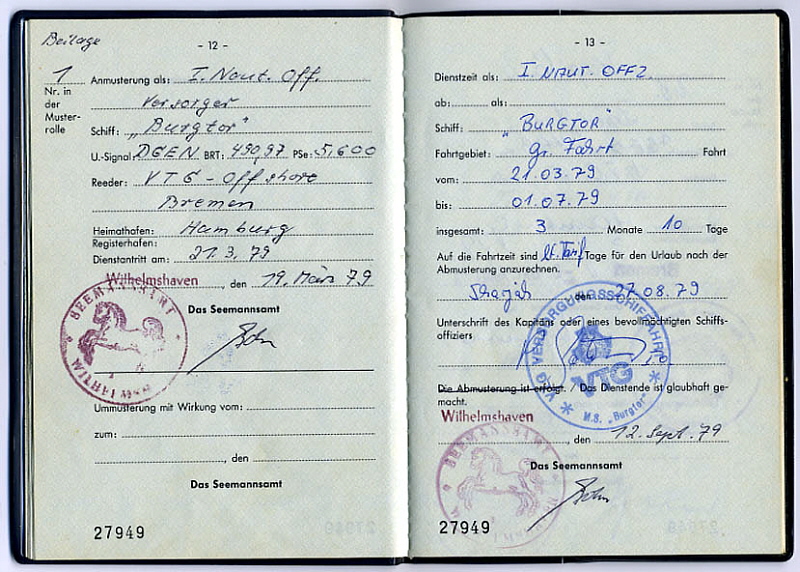 Beilage
- 12 -
1
Nr. in
der
Muster-
rolle
Anmusterung als: I. Naut. Off.
Versorger
Schiff: „Burgtor"
U.-Signal DGEN BRT: 490,97 PSe: 5.600
Reeder: VTG - Offshore
Bremen
Heimathafen: Hamburg
Registerhafen:
Dienstantritt am: 21.3.79
Wilhelmshaven, den 19. März 79
Das Seemannsamt
SEEMANNSAMT
Ummusterung mit Wirkung vom:
zum:
, den
Das Seemannsamt
27949
- 13 -
Dienstzeit als: I. NAUT. OFFZ.
ab: als:
Schiff: „BURGTOR"
Fahrtgebiet: Gr. Fahrt Fahrt
vom: 21.03.79
bis: 01.07.79
insgesamt: 3 Monate 10 Tage
Auf die Fahrtzeit sind lt. Tarif Tage für den Urlaub nach der
Abmusterung anzurechnen.
Sharjah den 27.08.79
Unterschrift des Kapitäns oder eines bevollmächtigten Schiffs-
offiziers
VERSORGUNGSSCHIFFFAHRT
VTG
M.S. „Burgtor"
Die Abmusterung ist erfolgt. / Das Dienstende ist glaubhaft ge-
macht.
Wilhelmshaven
, den 12. Sept. 79
SEEMANNSAMT
Das Seemannsamt
27949